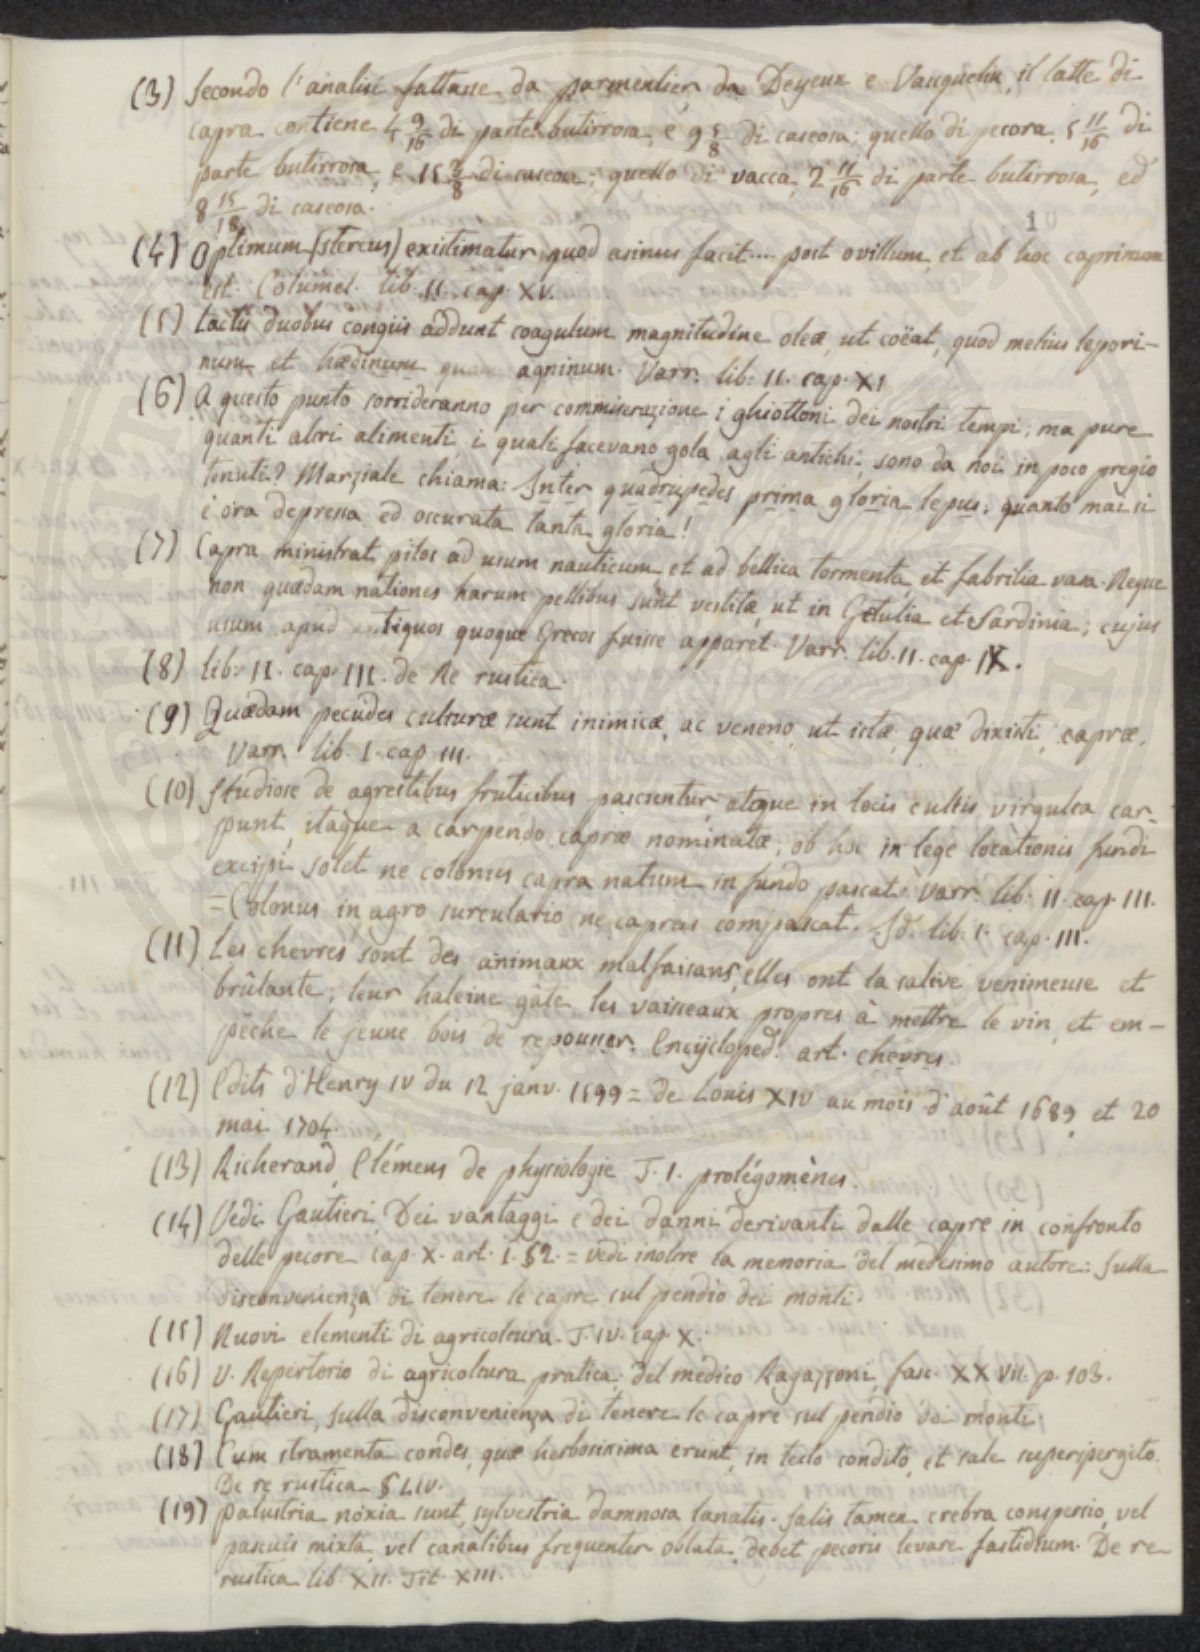 (3) Secondo l'analisi fattane da parmentier, da Deyeux e Vauquelin, il latte di
capra contiene 4 9/16 di parte butirrosa, e 9 5/8 di caseosa; quello di pecora, 5 11/16 di
parte butirrosa, e 15 3/8 di caseosa; quello di vacca, 2 11/16 di parte butirrosa, ed
8 15/18 di caseosa.
10
(4) Optimum (stercus) existimatur quod asinus facit.... post ovillum, et ab hoc caprinum
est. Columel. lib. II. cap. XV.
(5) Lactis duobus congiis addunt coagulum magnitudine oleæ, ut coëat, quod melius lepori-
num et hædinum quam agninum. Varr. lib. II. cap. XI
(6) A questo punto sorrideranno per commiserazione i ghiottoni dei nostri tempi; ma pure
quanti altri alimenti, i quali facevano gola agli antichi, sono da noi in poco pregio
tenuti? Marziale chiama: Inter quadrupedes prima gloria lepus; quanto mai si
è ora depressa ed oscurata tanta gloria!
(7) Capra ministrat pilos ad usum nauticum, et ad bellica tormenta, et fabrilia vasa. Neque
non quædam nationes harum pellibus sunt vestitæ, ut in Getulia et Sardinia; cujus
usum apud antiquos quoque Grecos fuisse apparet. Varr. lib. II. cap. IX.
(8) lib: II. cap. III. de Re rustica.
(9) Quædam pecudes culturæ sunt inimicæ, ac veneno, ut istæ, quæ dixisti, capræ.
Varr. lib. I. cap III.
(10) Studiose de agrestibus fruticibus pascuntur, atque in locis cultis virgulta car-
punt, itaque a carpendo capræ nominatæ; ob hoc in lege locationis fundi
excipi solet ne colonus capra natum in fundo pascat. Varr. lib. II. cap. III.
= Colonus in agro surculario ne capras compascat. Id. lib. I. cap. III.
(11) Les chevres sont des animaux malfaisans, elles ont la salive venimeuse et
brûlante; leur haleine gâte les vaisseaux propres à mettre le vin, et em-
pêche le jeune bois de repousser. Encycloped. art. chevres.
(12) Edits d'Henry IV du 12 janv. 1599 = de Louis XIV au mois d'août 1689, et 20
mai 1704.
(13) Richerand, Elémens de physiologie T. I. prolégomènes.
(14) Vedi Gautieri, Dei vantaggi e dei danni derivanti dalle capre in confronto
delle pecore cap. X. art. 1. §2. = vedi inoltre la memoria del medesimo autore: Sulla
disconvenienza di tenere le capre sul pendio dei monti.
(15) Nuovi elementi di agricoltura. T. IV. cap. X.
(16) V. Repertorio di agricoltura pratica, del medico Ragazzoni, fasc. XXVII. p. 103.
(17) Gautieri, sulla disconvenienza di tenere le capre sul pendio dei monti.
(18) Cum stramenta condes, quæ herbosissima erunt, in tecto condito, et sale superspergito.
De re rustica § LIV.
(19) palustria noxia sunt, sylvestria damnosa lanatis. Salis tamen crebra conspersio, vel
pascuis mixta, vel canalibus frequenter oblata, debet pecoris levare fastidium. De re
rustica lib. XII. Tit. XIII.